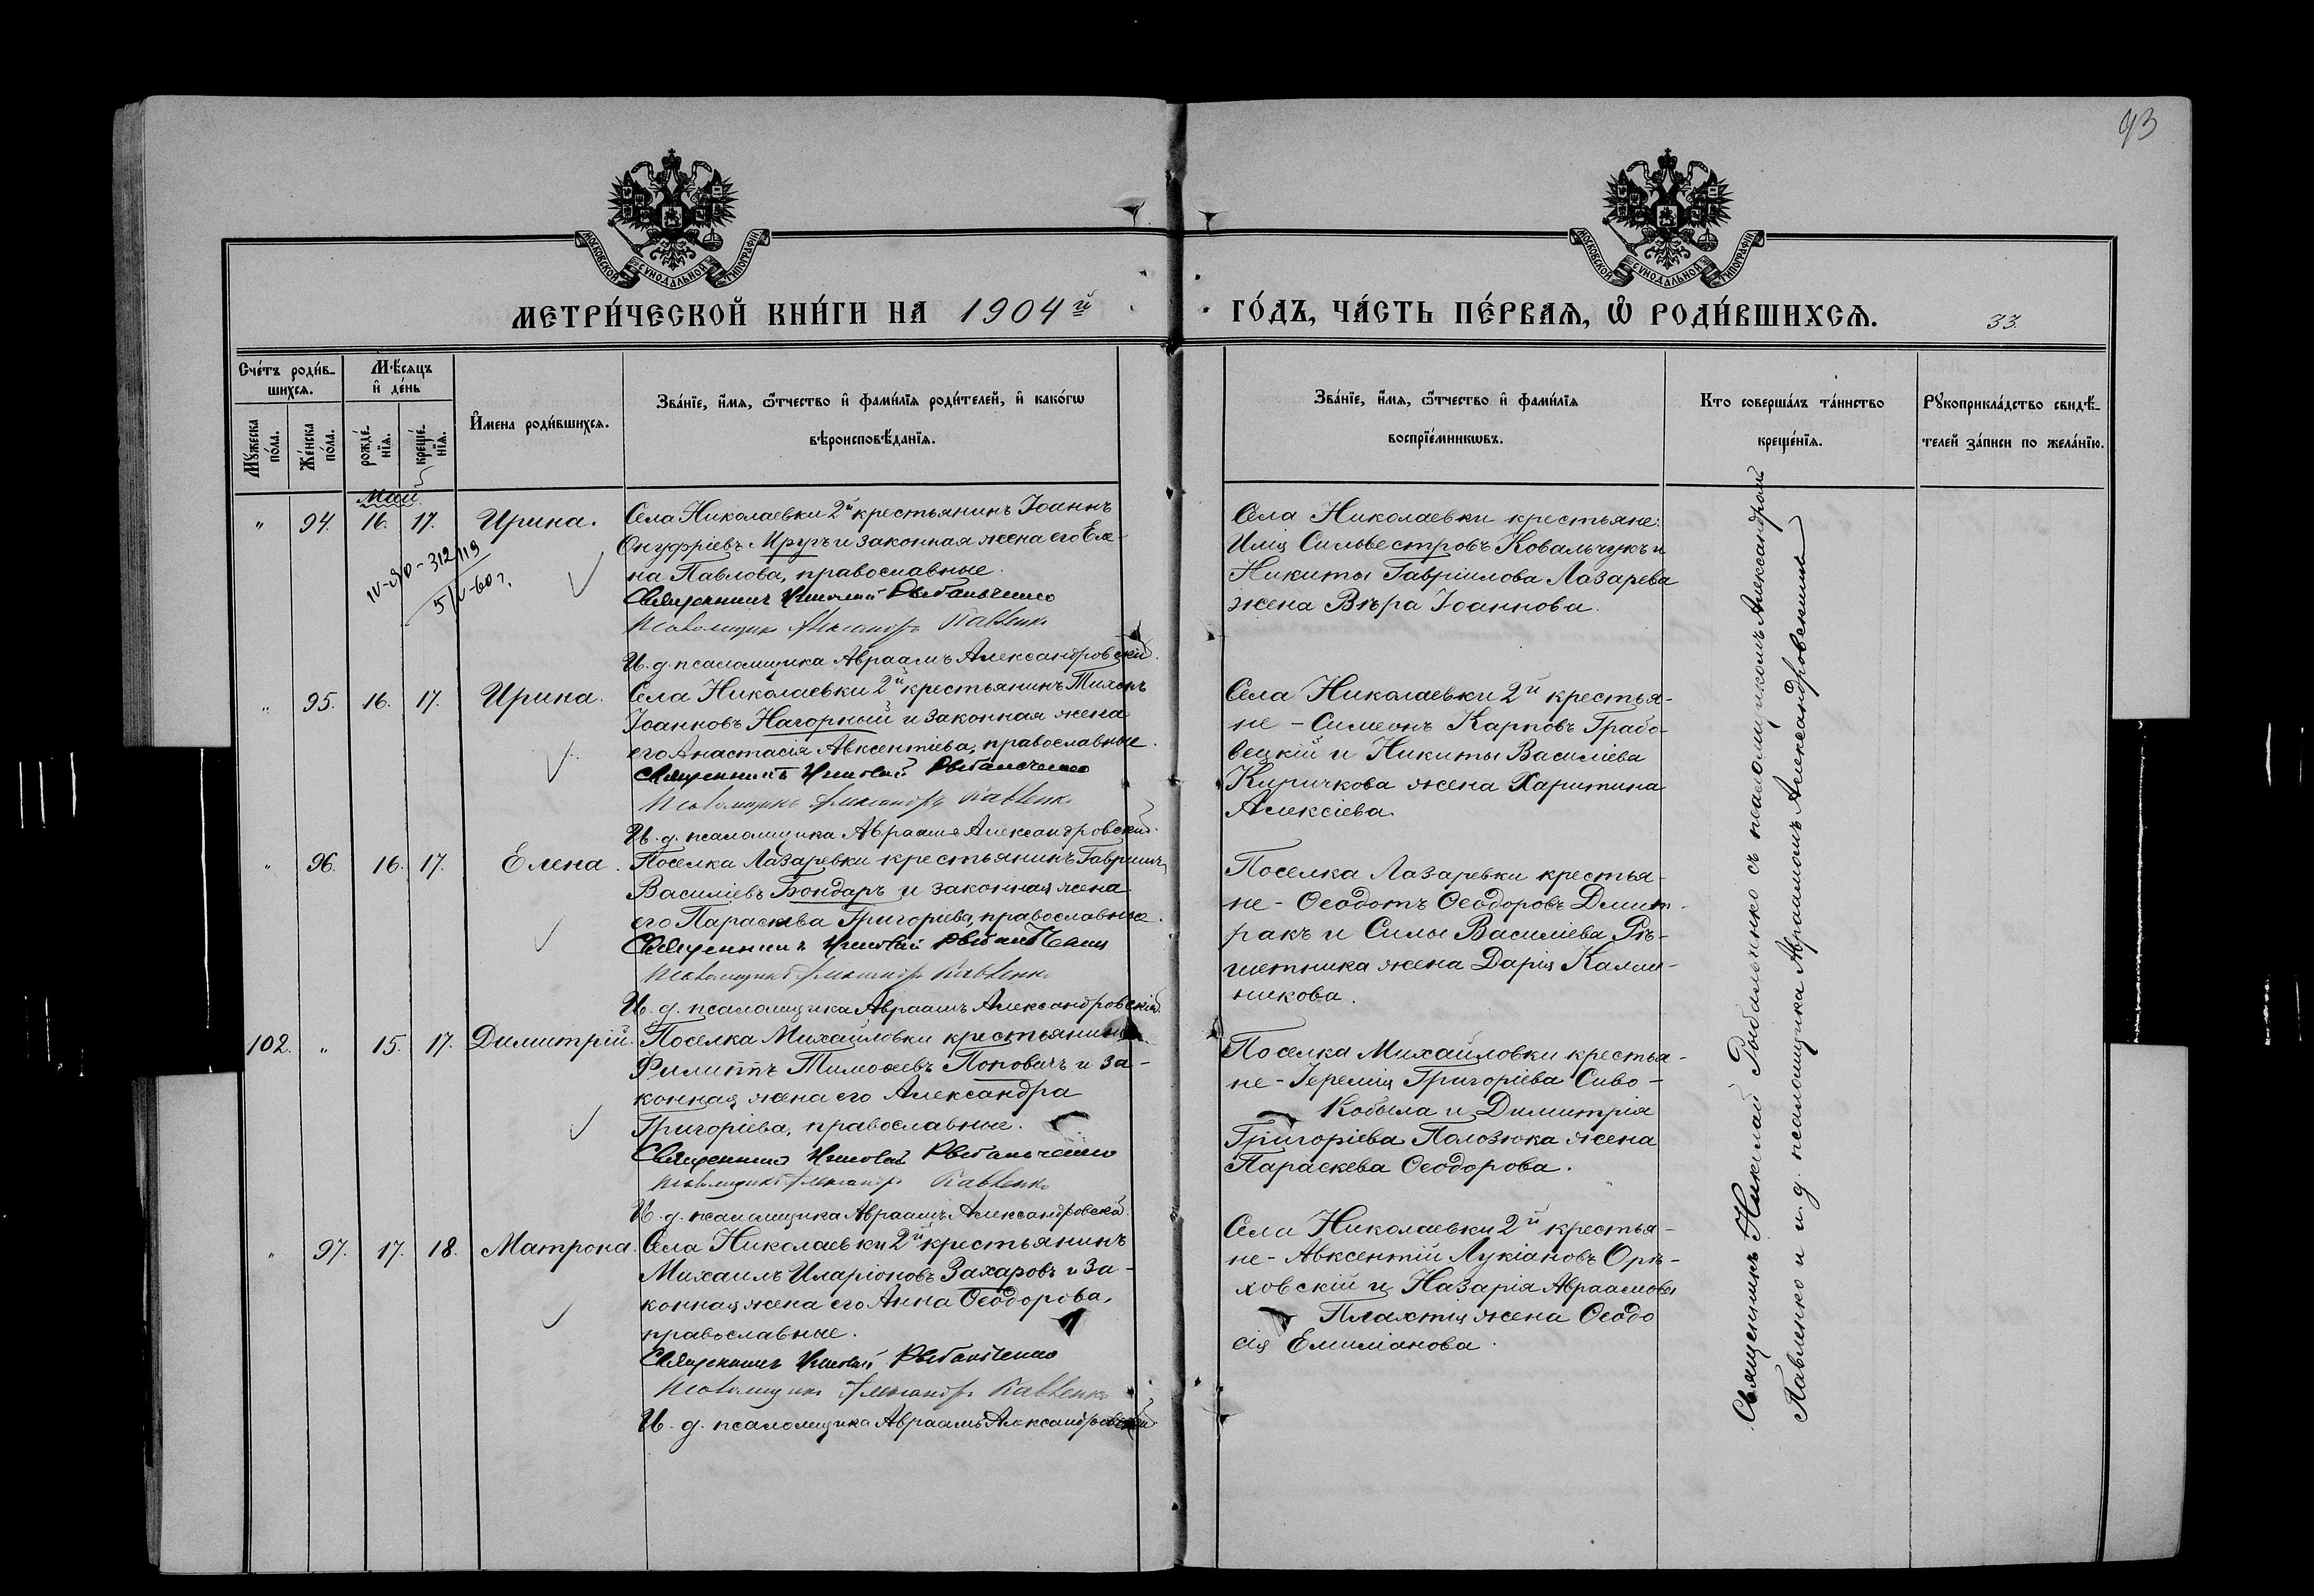 93
МОСКОВСКОЙ СѴНОДАЛЬНОЙ ТИПОГРАФІИ
МОСКОВСКОЙ СѴНОДАЛЬНОЙ ТИПОГРАФІИ
МЕТРИ́ЧЕСКОЙ КНИ́ГИ НА 1904й
ГО́ДЪ, ЧА́СТЬ ПЕ́РВАѦ, Ѡ҆ РОДИ́ВШИХСѦ.
33.
Сче́тъ роди́в-
шихсѧ.
Мꙋ́жеска по́ла.
Же́нска по́ла.
Мѣ́сѧцъ
и҆ де́нь
рожде́-
нїѧ.
креще́-
нїѧ.
И҆́мена роди́вшихсѧ.
Зва́нїе, и҆́мѧ, ѻ҆́тчество и҆ фами́лїѧ роди́телей, и҆ како́гѡ
вѣроисповѣ́данїѧ.
Зва́нїе, и҆́мѧ, ѻ҆́тчество и҆ фами́лїѧ
воспрїе́мникѡвъ.
Кто соверша́лъ та́инство
креще́нїѧ.
Рꙋкоприкла́дство свидѣ́-
телей за́писи по жела́нїю.
Май
" 94. 16. 17. Ирина.
Села Николаевки 2й крестьянинъ Іоаннъ
Онуфріевъ Мругъ и законная жена его Еле-
на Павлова, православные.
Священникъ Николай Рыбальченко
Псаломщикъ Александръ Павленко
И. д. псаломщика Авраамъ Александровскій.
312/119
5/V-60 г.
Села Николаевки крестьяне:
Илія Сильвестровъ Ковальчукъ и
Никиты Гавріилова Лазарева
жена Вѣра Іоаннова.
" 95. 16. 17. Ирина.
Села Николаевки 2й крестьянинъ Тихонъ
Іоанновъ Нагорный и законная жена
его Анастасія Авксентіева, православные.
Священникъ Николай Рыбальченко
Псаломщикъ Александръ Павленко
И. д. псаломщика Авраамъ Александровскій.
Села Николаевки 2й крестья-
не - Симеонъ Карповъ Грабо-
вецкій и Никиты Василіева
Киричкова жена Харитина
Алексіева.
" 96. 16. 17. Елена.
Поселка Лазаревки крестьянинъ Гавріилъ
Василіевъ Бондарь и законная жена
его Параскева Григоріева, православные.
Священникъ Николай Рыбальченко
Псаломщикъ Александръ Павленко
И. д. псаломщика Авраамъ Александровскій.
Поселка Лазаревки крестья-
не - Ѳеодотъ Ѳеодоровъ Дмит-
ракъ и Силы Василіева Рѣ-
шетника жена Дарія Калли-
никова.
102. " 15. 17. Димитрій.
Поселка Михайловки крестьянинъ
Филиппъ Тимоѳеевъ Поповичъ и за-
конная жена его Александра
Григоріева, православные.
Священникъ Николай Рыбальченко
Псаломщикъ Александръ Павленко
И. д. псаломщика Авраамъ Александровскій.
Поселка Михайловки крестья-
не - Іеремія Григоріева Сиво-
Кобыла и Димитрія
Григоріева Полозюка жена
Параскева Ѳеодорова.
" 97. 17. 18. Матрона.
Села Николаевки 2й крестьянинъ
Михаилъ Иларіоновъ Захаровъ и за-
конная жена его Анна Ѳеодорова,
православные.
Священникъ Николай Рыбальченко
Псаломщикъ Александръ Павленко
И. д. псаломщика Авраамъ Александровскій
Села Николаевки 2й крестья-
не - Авксентій Лукіановъ Орѣ-
ховскій и Назарія Авраамова
Плахтія жена Ѳеодо
сія Емиліанова.
Священникъ Николай Рыбальченко съ псаломщикомъ Александромъ
Павленко и и. д. псаломщика Авраамомъ Александровскимъ